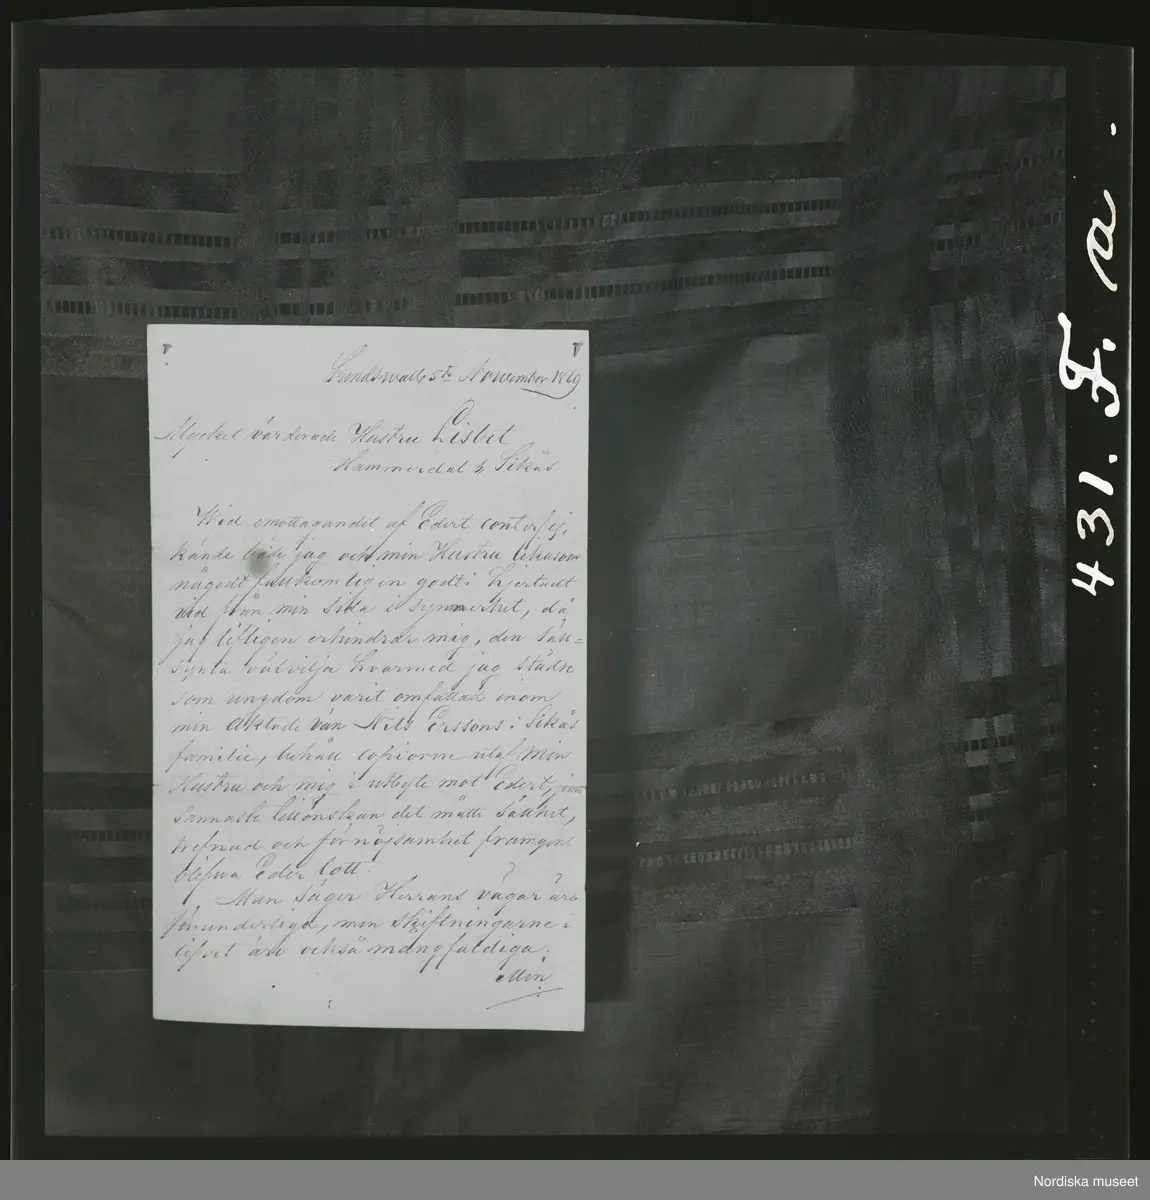 Sundswall 5te November 1869
Mycket värderade Hustru Lisbet
Hammerdal & Sikås
Wid emottagandet af Edert conterfej,
kände både jag och min Hustru likasom
någodt fullkomligen godt i hjertadt
vid från min sida i synnerhet, då
jag lifligen erhindrar mig, den
synta välvilja hvarmed jag städse
som ungdom varit omfattad inom
min aktade vän Nils Erssons i Sikås
familie, behåll copiorne utaf min
Hustru och mig i utbyte mot Edert, jemte
sannaste lyckönskan det måtte sällhet,
trefnad och förnöjsamhet framgent
blifwa Eder lott.
Man säger Herrans vägar äro
förunderliga, men skiftningarne i
lifvet äro också mångfaldiga.
Min
431. F. a.
Nordiska museet